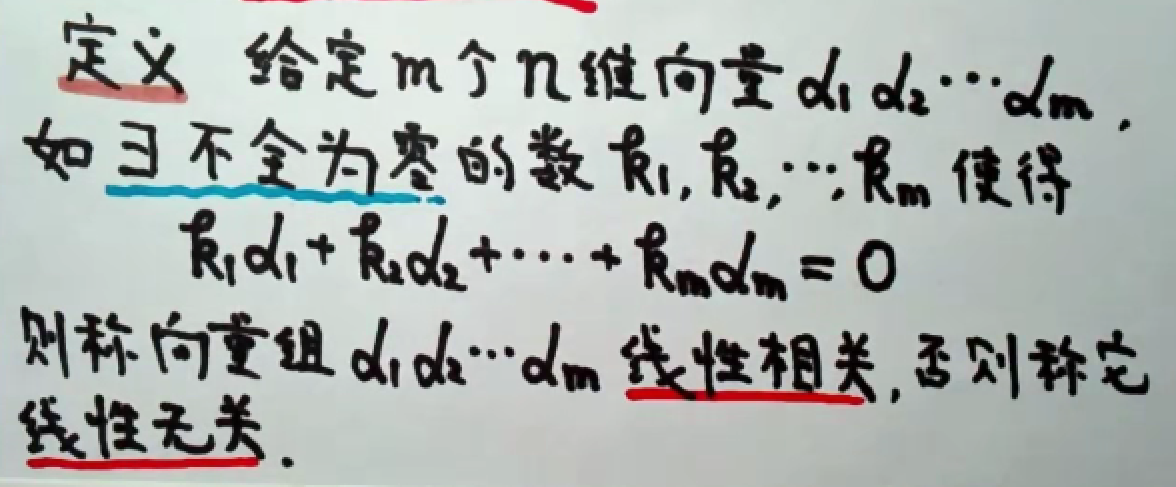 定义 给定m个n维向量α₁ α₂ ⋯ αₘ,
如∃不全为零的数 k₁, k₂, ⋯, kₘ 使得
k₁α₁ + k₂α₂ + ⋯ + kₘαₘ = 0
则称向量组 α₁ α₂ ⋯ αₘ 线性相关, 否则称它
线性无关.